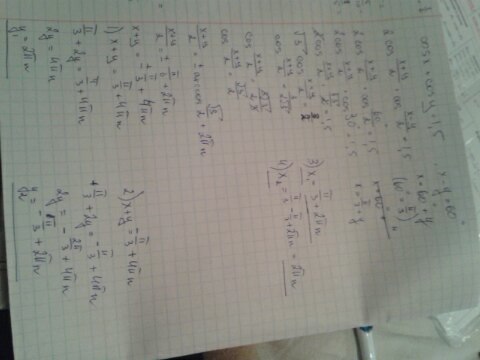 cos x + cos y = 1,5   x - y = 60°
2 cos (x+y)/2 · cos (x-y)/2 = 1,5   x = 60° + y
(60° = π/3)
2 cos (x+y)/2 · cos 60°/2 = 1,5   x = 60° + y
2 cos (x+y)/2 · cos 30° = 1,5   x = π/3 + y
2 cos (x+y)/2 · √3/2 = 1,5
√3 cos (x+y)/2 = 3/2
cos (x+y)/2 = 3/2√3
cos (x+y)/2 = √3/2
(x+y)/2 = ± arccos √3/2 + 2πn
(x+y)/2 = ± π/6 + 2πn
x+y = ± π/3 + 4πn
1) x+y = π/3 + 4πn
π/3 + 2y = π/3 + 4πn
2y = 4πn
y₁ = 2πn
2) x+y = -π/3 + 4πn
π/3 + 2y = -π/3 + 4πn
2y = -2π/3 + 4πn
y₂ = -π/3 + 2πn
3) x₁ = π/3 + 2πn
4) x₂ = π/3 - π/3 + 2πn = 2πn